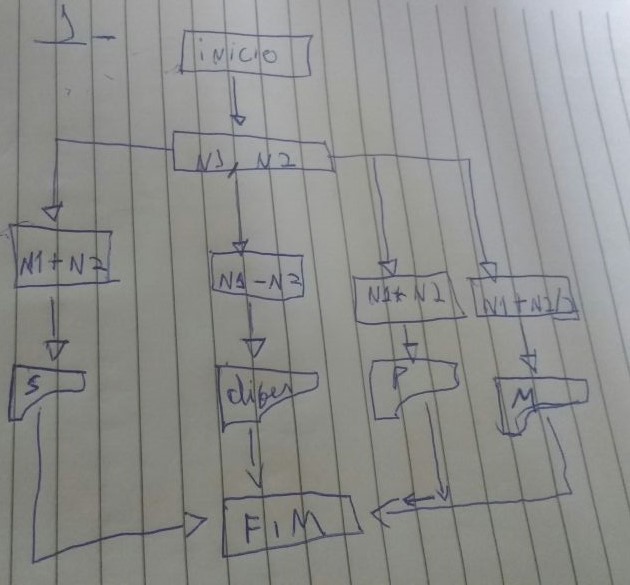 1-
inicio
N1, N2
N1+N2
N1-N2
N1* N2
N1+N2/2
S
difer
P
M
FiM